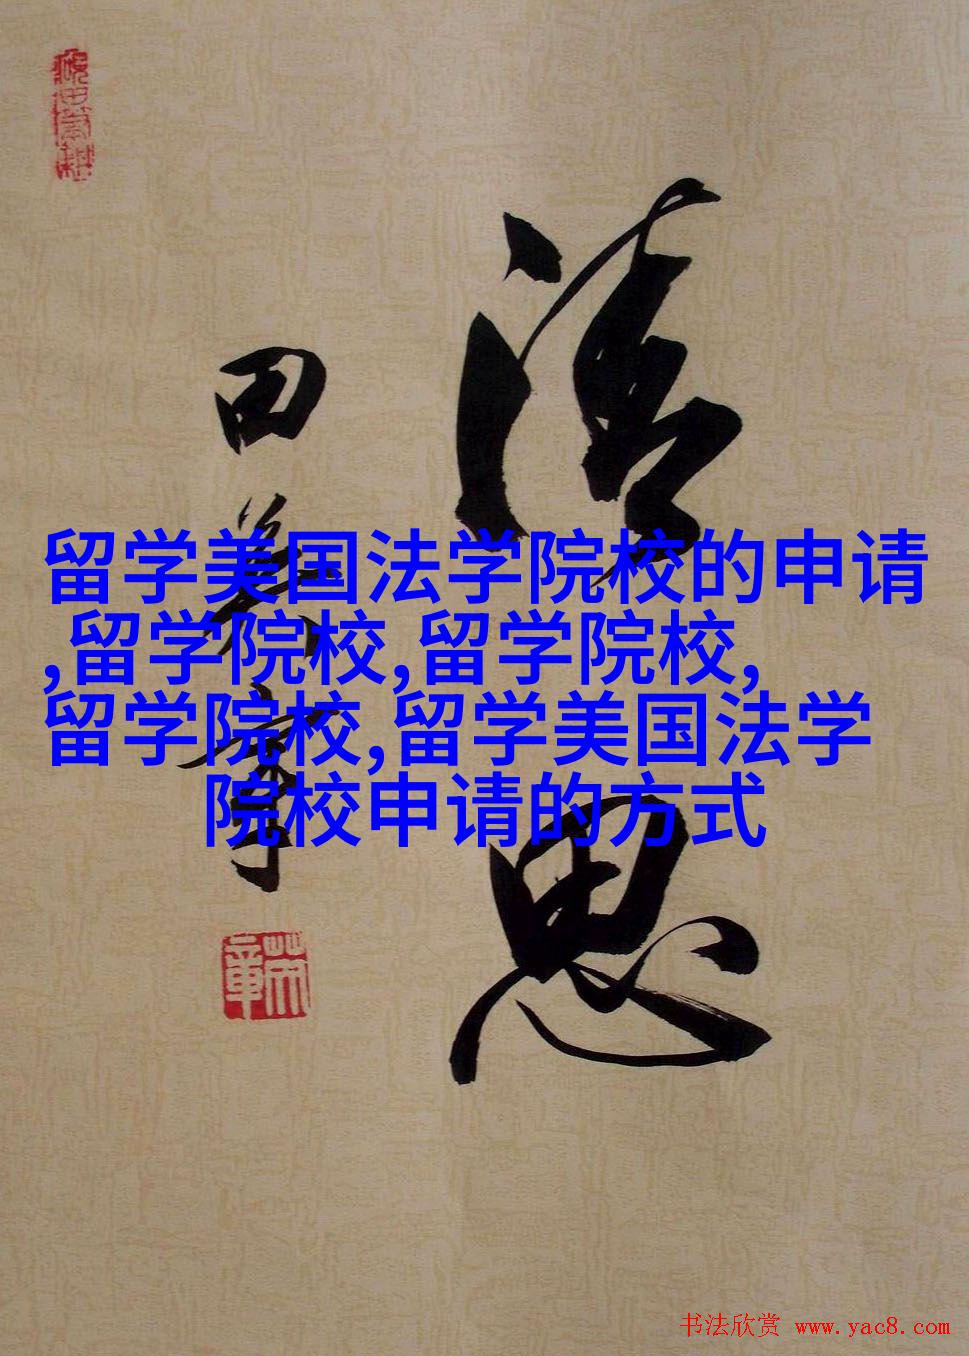 留学美国法学院校的申请
,留学院校,留学院校,
留学院校,留学美国法学
院校申请的方式
田英章
书法欣赏 www.yac8.com